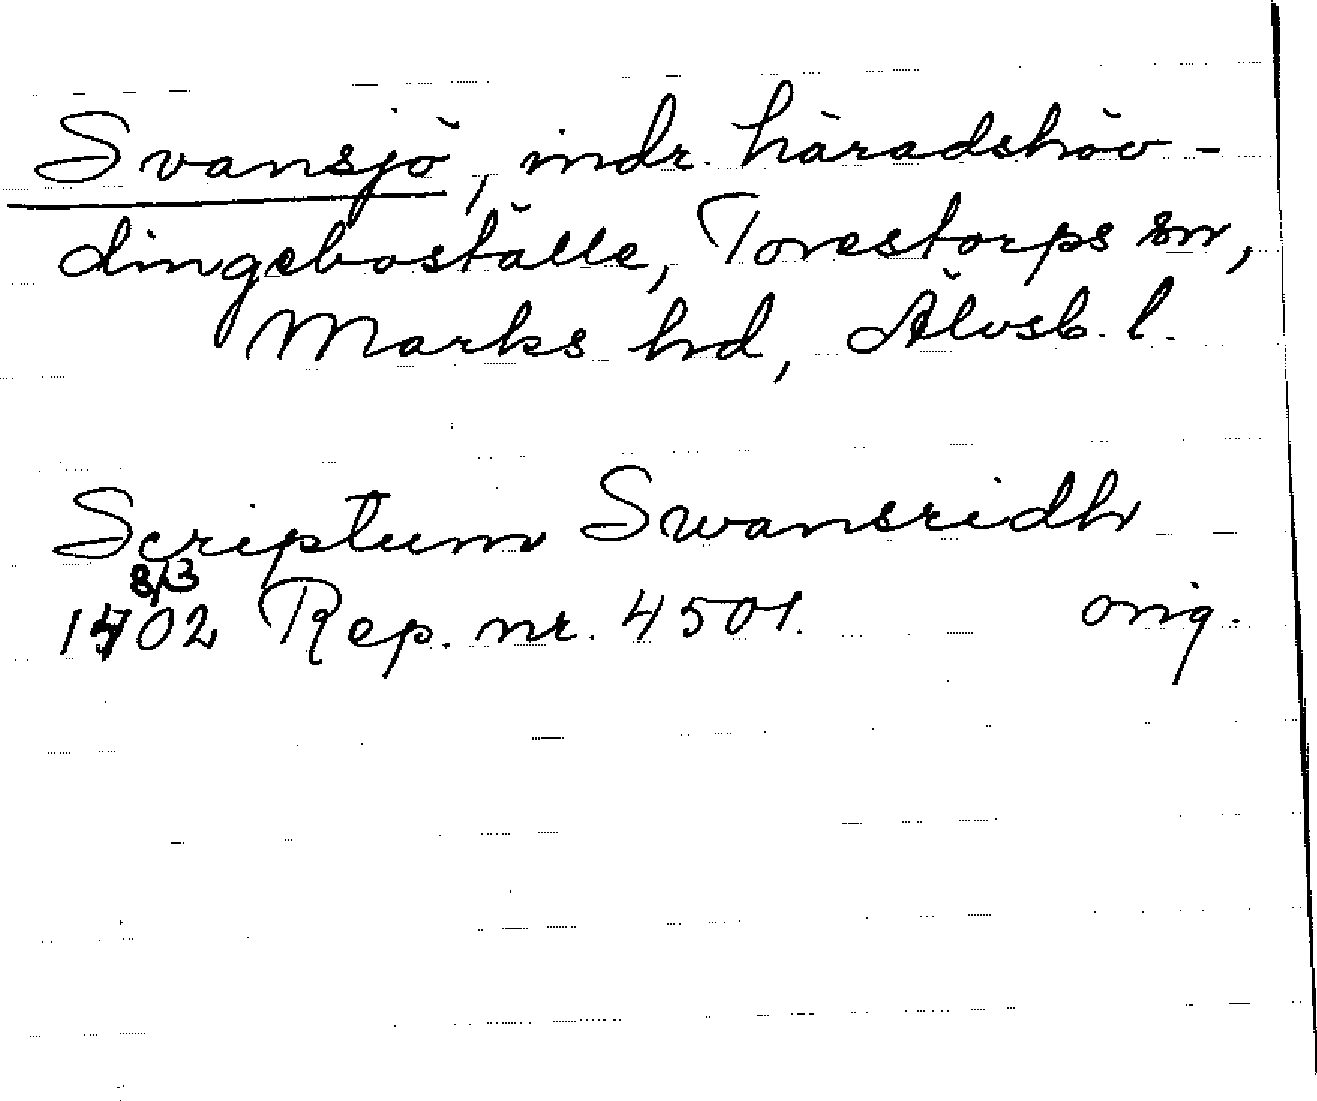 Svansjö, indr. häradshöv-
dingeboställe, Torestorps sn,
Marks hd, Älvsb. l.
Scriptum Swansridh
8/3
1402 Rep. nr. 4501. orig.